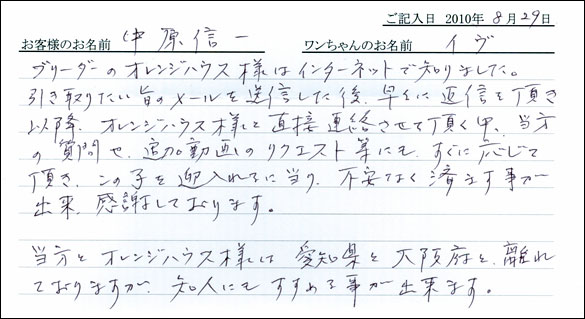 ご記入日 2010年 8月29日
お客様のお名前 中原信一 ワンちゃんのお名前 イヴ
ブリーダーのオレンジハウス様はインターネットで知りました。
引き取りたい旨のメールを送信した後、早々に返信を頂き
以降、オレンジハウス様と直接連絡させて頂く中、当方
の質問や、追加動画のリクエスト等にも、すぐに応じて
頂き、この子を迎入れるに当り、不安なく済ます事が
出来、感謝しております。
当方とオレンジハウス様は愛知県と大阪府と、離れ
ておりますが、知人にもすすめる事が出来ます。